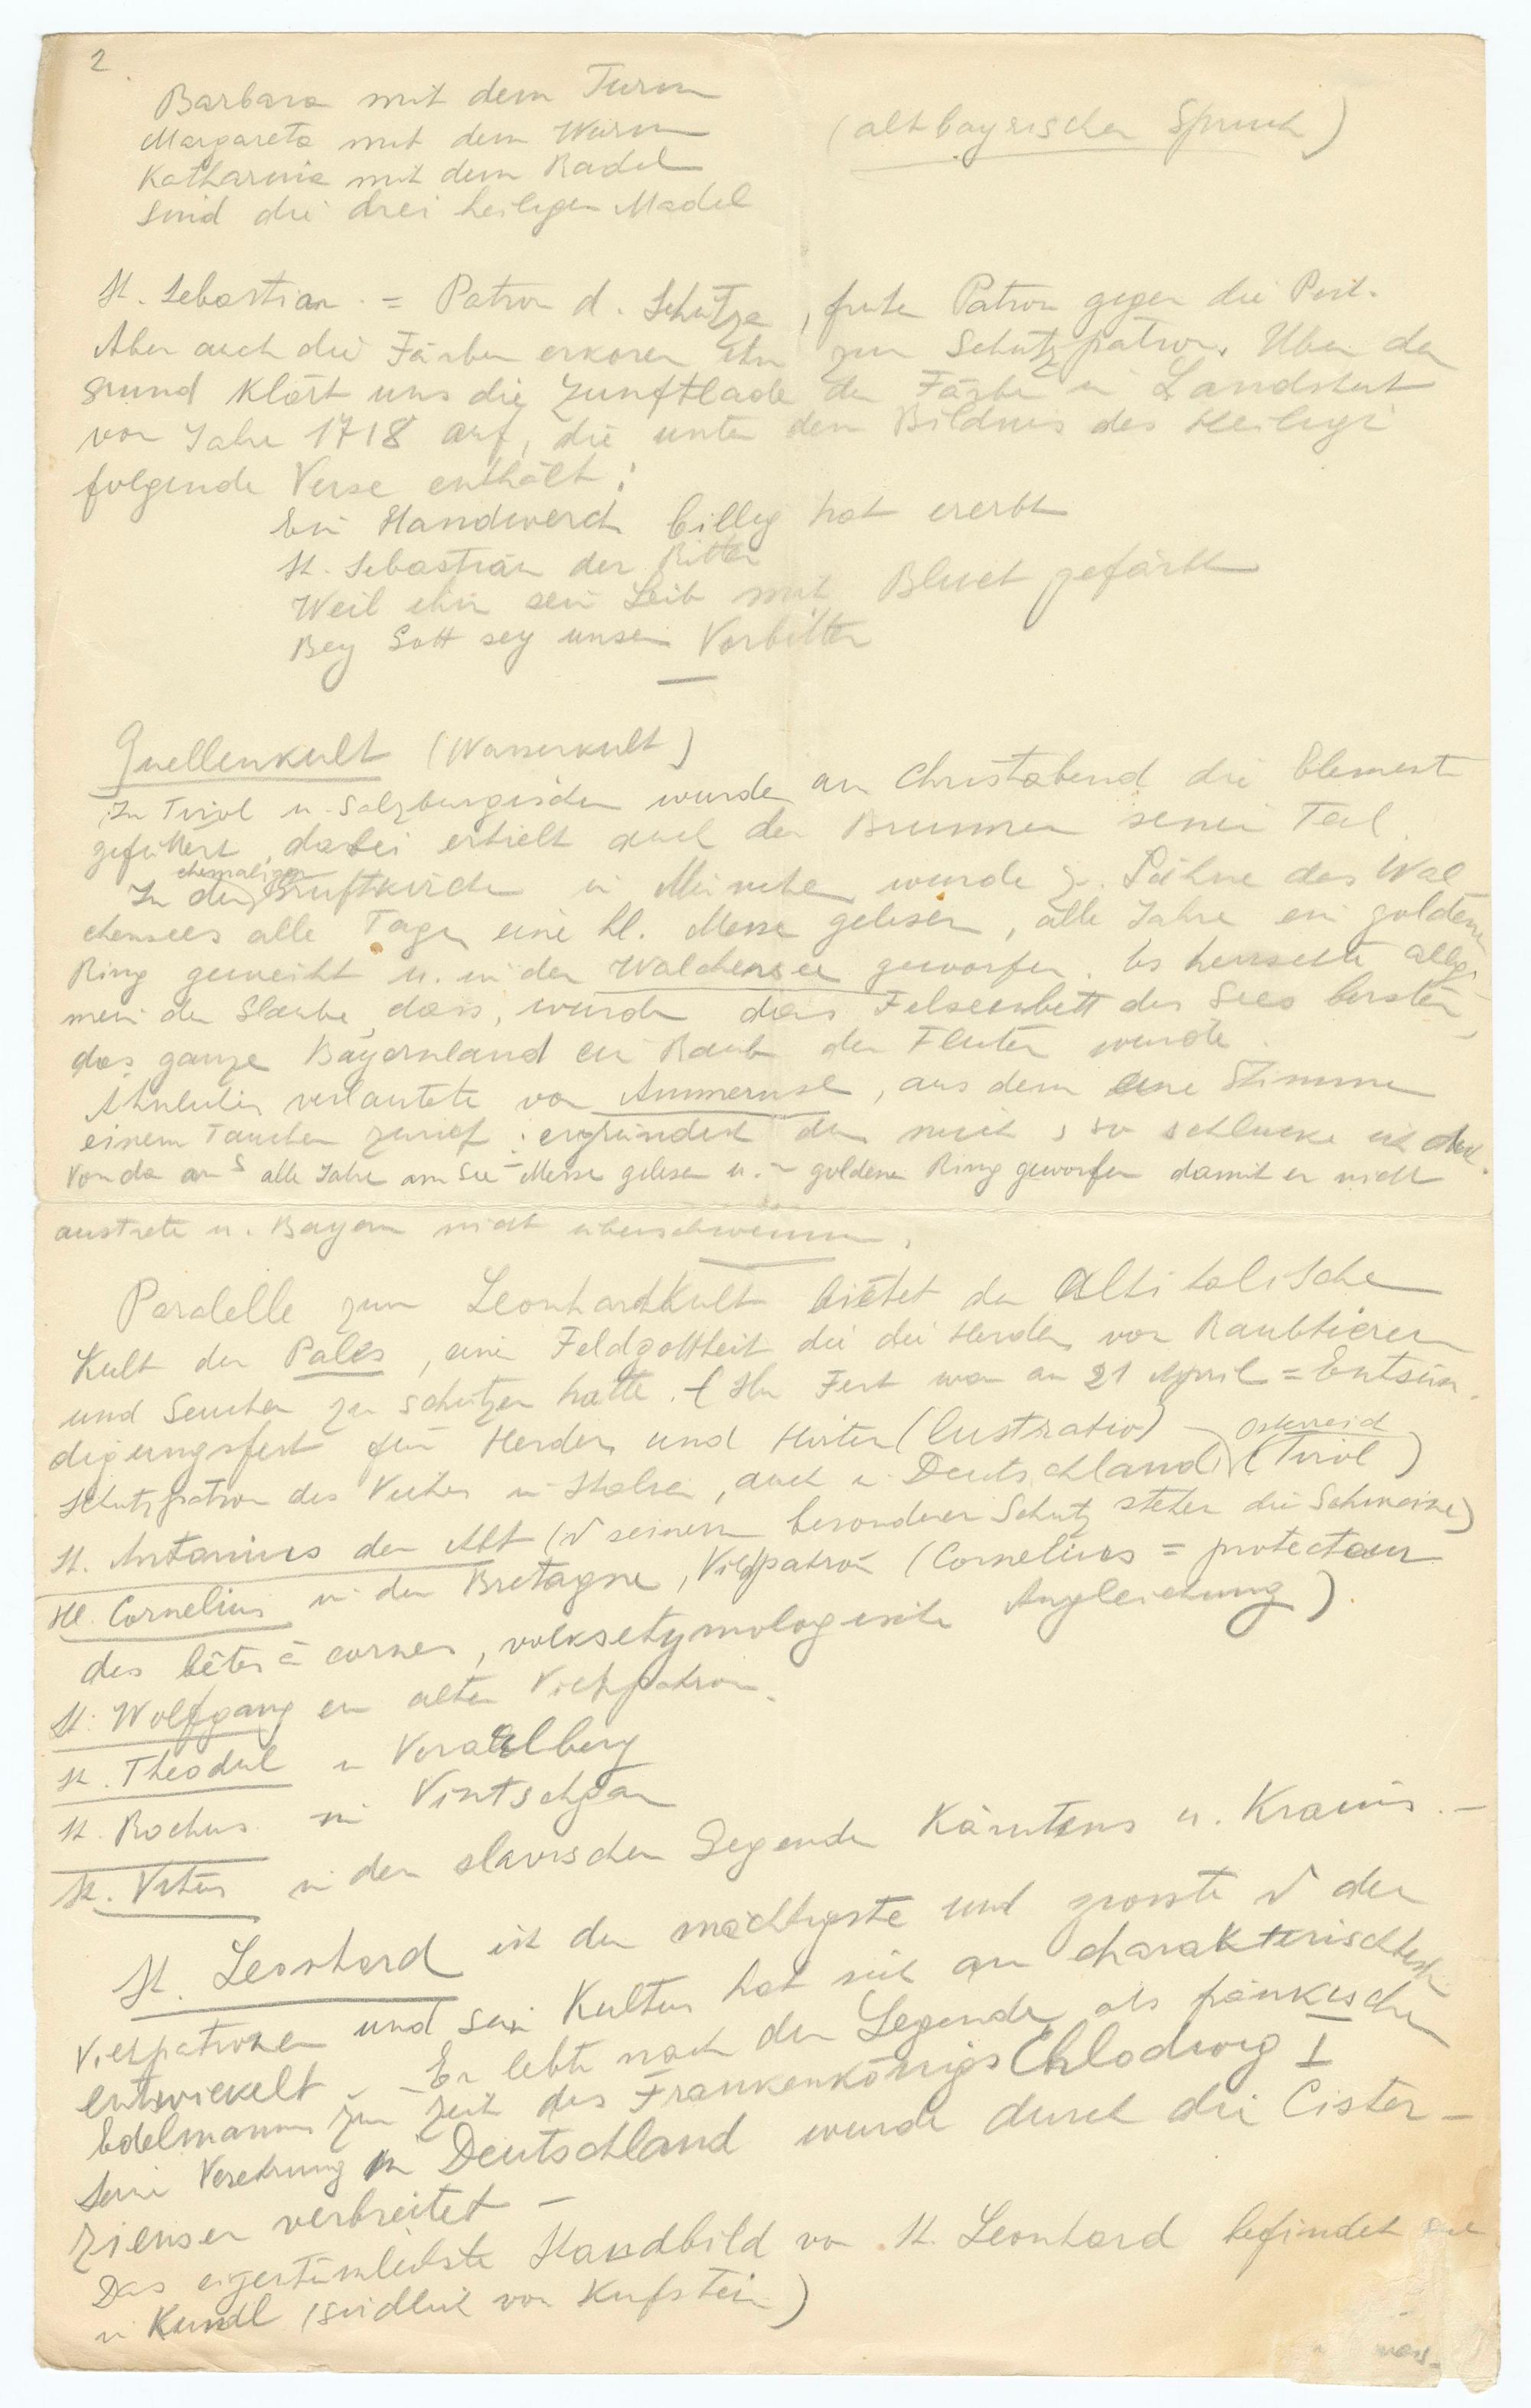 2
Barbara mit dem Turm
Margareta mit dem Wurm
Katharina mit dem Radel
Sind die drei heiligen Madel
(altbayrischer Spruch)
St. Sebastian = Patron d. Schütze, früher Patron gegen die Pest.
Aber auch die Färber erkoren ihn zum Schutzpatron. Über den
Grund klärt uns die Zunftlade der Färber in Landshut
vom Jahre 1718 auf, die unter dem Bildnis des Heiligen
folgende Verse enthält:
Ein Handwerch billig hat ererbt
St. Sebastian der Ritter
Weil ihm sein Leib mit Bluet gefärbt
Bey Gott sey unser Vorbitter
Quellenkult (Wasserkult)
In Tirol u. Salzburgischen wurden am Christabend die Elemente
gefüttert, dabei erhielt auch der Brunnen seinen Teil.
In der ehemaligen Gruftkirche in München wurde z. Sühne des Wal
chensees alle Tage eine hl. Messe gelesen, alle Jahre ein goldener
Ring geweiht u. in den Walchensee geworfen. Es herrschte allge
mein der Glaube, dass, würde das Felsenbett des Sees bersten,
das ganze Bayernland ein Raub der Fluten würde.
Ähnliches verlautete vom Ammersee, aus dem eine Stimme
einem Taucher zurief: ergründest du mich, so schlucke ich dich.
Von da an alle Jahre am See Messe gelesen u. goldener Ring geworfen damit er nicht
austrete u. Bayern nicht überschwemme.
Paralelle zum Leonhardkult bietet der altitalische
Kult der Pales, eine Feldgottheit die die Herden vor Raubtieren
und Seuchen zu schützen hatte. (Ihr Fest war am 21 April = Entsün
digungsfest für Herden und Hirten (lustratio)
Schutzpatron des Viehes in Italien, auch in Deutschland, Österreich (Tirol)
St. Antonius der Abt (v seinem besonderen Schutz stehen die Schweine)
Hl. Cornelius in der Bretagne, Viehpatron (Cornelius = protecteur
des bêtes à cornes, volksetymologische Angleichung).
St. Wolfgang ein alter Viehpatron.
St. Theodul in Vorarlberg
St. Rochus im Vintschgau
St. Vitus in der slavischen Legende Kärntens u. Krains. –
St. Leonhard ist der mächtigste und grösste v den
Viehpatronen und sein Kultus hat sich am charakteristischsten
entwickelt – Er lebte nach der Legende als fränkischer
Edelmann zur Zeit des Frankenkönigs Chlodwig I
Seine Verehrung in Deutschland wurde durch die Cister-
zienser verbreitet –
Das eigentümlichste Standbild von St. Leonhard befindet sich
in Kundl (südlich von Kufstein)